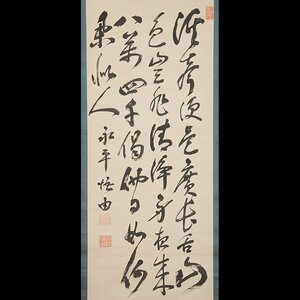 溪聲便是廣長舌山
色豈非清淨身夜來
八萬四千偈他日如何
擧似人
永平悟由